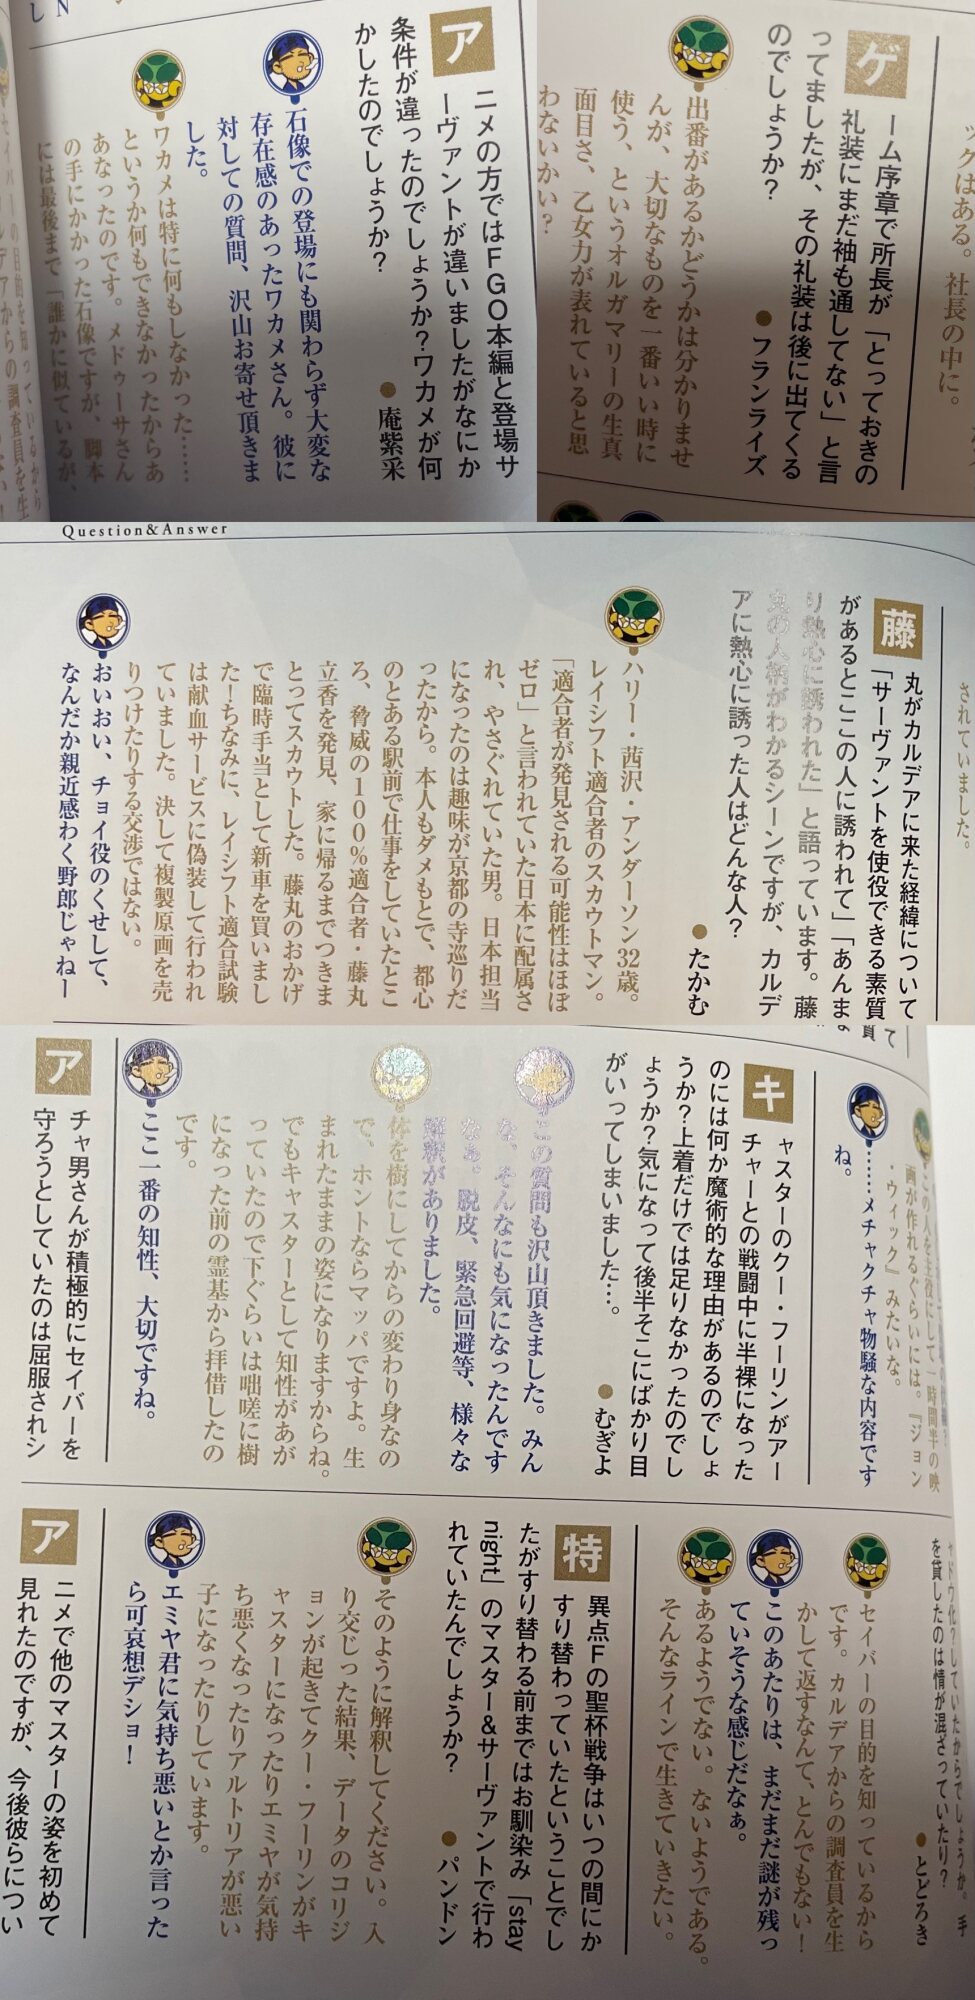 アニメの方ではFGO本編と登場サ
ーヴァントが違いましたがなにか
条件が違ったのでしょうか?ワカメが何
かしたのでしょうか?
●庵紫采
石像での登場にも関わらず大変な
存在感のあったワカメさん。彼に
対しての質問、沢山お寄せ頂きま
した。
ワカメは特に何もしなかった……
というか何もできなかったからあ
あなったのです。メドゥーサさん
の手にかかった石像ですが、脚本
には最後まで「誰かに似ているが、
クはある。社長の中に。
ゲーム序章で所長が「とっておきの
礼装にまだ袖も通してない」と言
ってましたが、その礼装は後に出てくる
のでしょうか?
●フランライズ
出番があるかどうかは分かりませ
んが、大切なものを一番いい時に
使う、というオルガマリーの生真
面目さ、乙女力が表れていると思
わないかい?
Question&Answer
されていました。
藤丸がカルデアに来た経緯について
「サーヴァントを使役できる素質
があるとここの人に誘われて」「あんま
り熱心に誘われた」と語っています。藤
丸の人柄がわかるシーンですが、カルデ
アに熱心に誘った人はどんな人?
●たかむ
ハリー・茜沢・アンダーソン32歳。
レイシフト適合者のスカウトマン。
「適合者が発見される可能性はほぼ
ゼロ」と言われていた日本に配属さ
れ、やさぐれていた男。日本担当
になったのは趣味が京都の寺巡りだ
ったから。本人もダメもとで、都心
のとある駅前で仕事をしていたとこ
ろ、脅威の100%適合者・藤丸
立香を発見、家に帰るまでつきま
とってスカウトした。藤丸のおかげ
で臨時手当として新車を買いまし
た!ちなみに、レイシフト適合試験
は献血サービスに偽装して行われ
ていました。決して複製原画を売
りつけたりする交渉ではない。
おいおい、チョイ役のくせして、
なんだか親近感わく野郎じゃねー
この人を主役にして一時間半の映
画が作れるぐらいには。『ジョン
・ウィック』みたいな。
……メチャクチャ物騒な内容です
ね。
キャスターのクー・フーリンがアー
チャーとの戦闘中に半裸になった
のには何か魔術的な理由があるのでしょ
うか?上着だけでは足りなかったのでし
ょうか?気になって後半そこにばかり目
がいってしまいました…。
●むぎよ
この質問も沢山頂きました。みん
な、そんなにも気になったんです
なぁ。脱皮、緊急回避等、様々な
解釈がありました。
体を樹にしてからの変わり身なの
で、ホントならマッパですよ。生
まれたままの姿になりますからね。
でもキャスターとして知性があが
っていたので下ぐらいは咄嗟に樹
になった前の霊基から拝借したの
です。
ここ一番の知性、大切ですね。
アチャ男さんが積極的にセイバーを
守ろうとしていたのは屈服されシ
ャドウ化?していたからでしょうか。手
を貸したのは情が混ざっていたり?
●とどろき
セイバーの目的を知っているから
です。カルデアからの調査員を生
かして返すなんて、とんでもない!
このあたりは、まだまだ謎が残っ
ていそうな感じだなぁ。
あるようでない。ないようである。
そんなラインで生きていきたい。
特異点Fの聖杯戦争はいつの間にか
すり替わっていたということでし
たがすり替わる前まではお馴染み「stay
night」のマスター&サーヴァントで行わ
れていたんでしょうか?
●パンドン
そのように解釈してください。入
り交じった結果、データのコリジ
ョンが起きてクー・フーリンがキ
ャスターになったりエミヤが気持
ち悪くなったりアルトリアが悪い
子になったりしています。
エミヤ君に気持ち悪いとか言った
ら可哀想デショ!
アニメで他のマスターの姿を初めて
見れたのですが、今後彼らについ